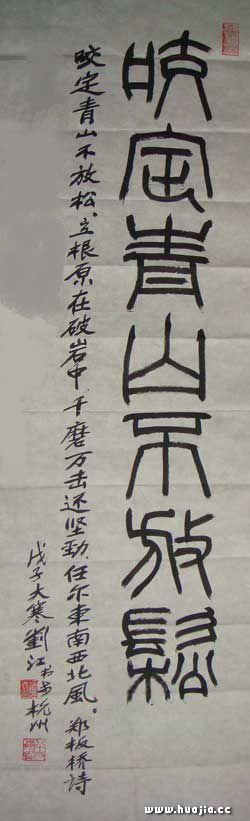 咬定青山不放鬆
咬定青山不放松、立根原在破岩中、千磨万击还坚劲、任尔東南西北風。郑板桥詩
戊子大寒劉江书于杭州
www.huajia.cc